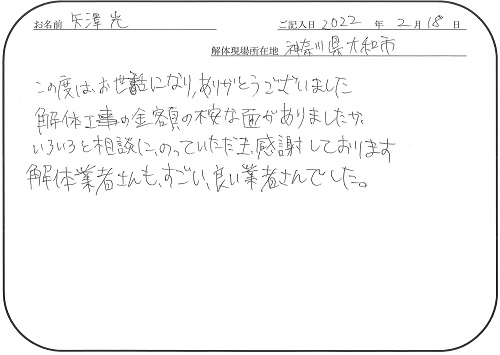 お名前 矢澤 光 ご記入日 2022 年 2 月 18 日
解体現場所在地 神奈川県大和市
この度は、お世話になり、ありがとうございました
解体工事の金額の不安な面がありましたが、
いろいろと相談に、のっていただき、感謝しております
解体業者さんも、すごい、良い業者さんでした。